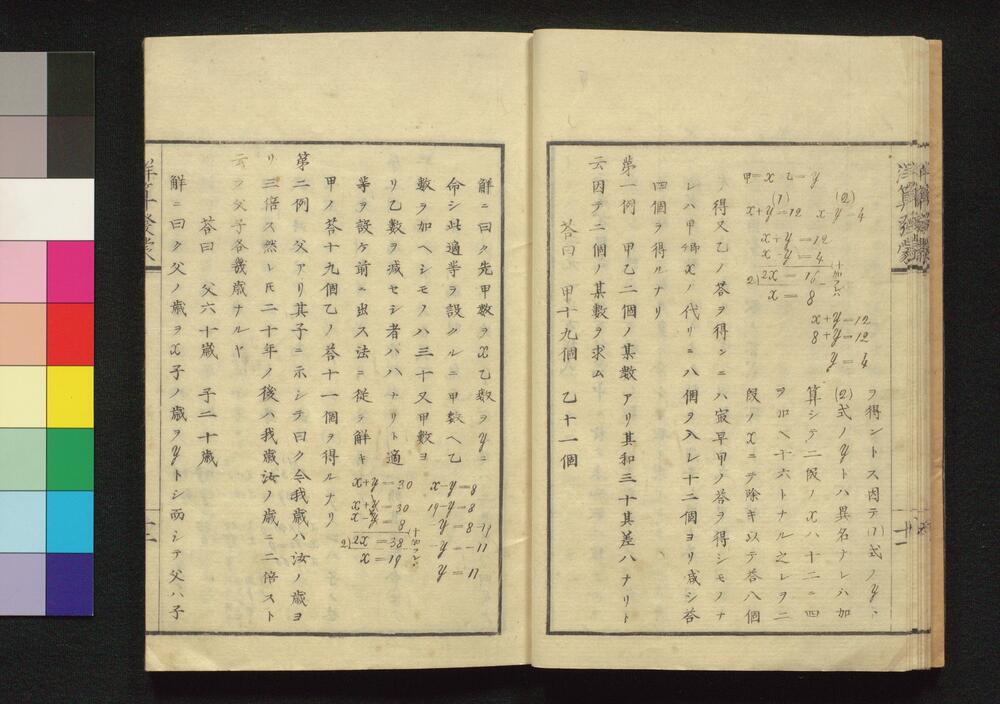 甲=x 乙=y
(1) (2)
x+y=12 x-y=4
x+y=12
x-y=4
2)2x=16
x=8
x+y=12
8+y=12
y=4
ヲ得ントス因テ(1)式ノyト
(2)式ノyトハ異名ナレハ加
算シテ二段ノxハ十二ニ四
ヲ加ヘ十六トナル之レヲ二
段ノxニテ除キ以テ答八個
ヲ得又乙ノ答ヲ得ンニハ最早甲ノ答ヲ得シモノナ
レハ甲卽xノ代リニ八個ヲ入レ十二個ヨリ減シ答
四個ヲ得ルナリ
第一例 甲乙二個ノ某數アリ其和三十其差八ナリト
云因テ二個ノ某數ヲ求ム
答曰 甲十九個 乙十一個
解ニ曰ク先甲數ヲx乙數ヲyニ
命シ此適等ヲ設クルニ甲數ヘ乙
數ヲ加ヘシモノハ三十又甲數ヨ
リ乙數ヲ减セシ者ハ八ナリト適
等ヲ設ケ前ニ出ス法ニ從ヲ解キ
甲ノ答十九個乙ノ答十一個ヲ得ルナリ
x+y=30
x+y=30
x-y=8
2)2x=38
x=19
x-y=8
19-y=8
y=8-19
-y=-11
y=11
第二例 父アリ其子ニ示シテ曰ク今我歳ハ汝ノ歳ヨ
リ三倍ス然レ𪜈二十年ノ後ハ我歳汝ノ歳ニ二倍スト
云フ父子各幾歳ナルヤ
答曰 父六十歳 子二十歳
解ニ曰ク父ノ歳ヲx子ノ歳ヲyトシ而シテ父ハ子